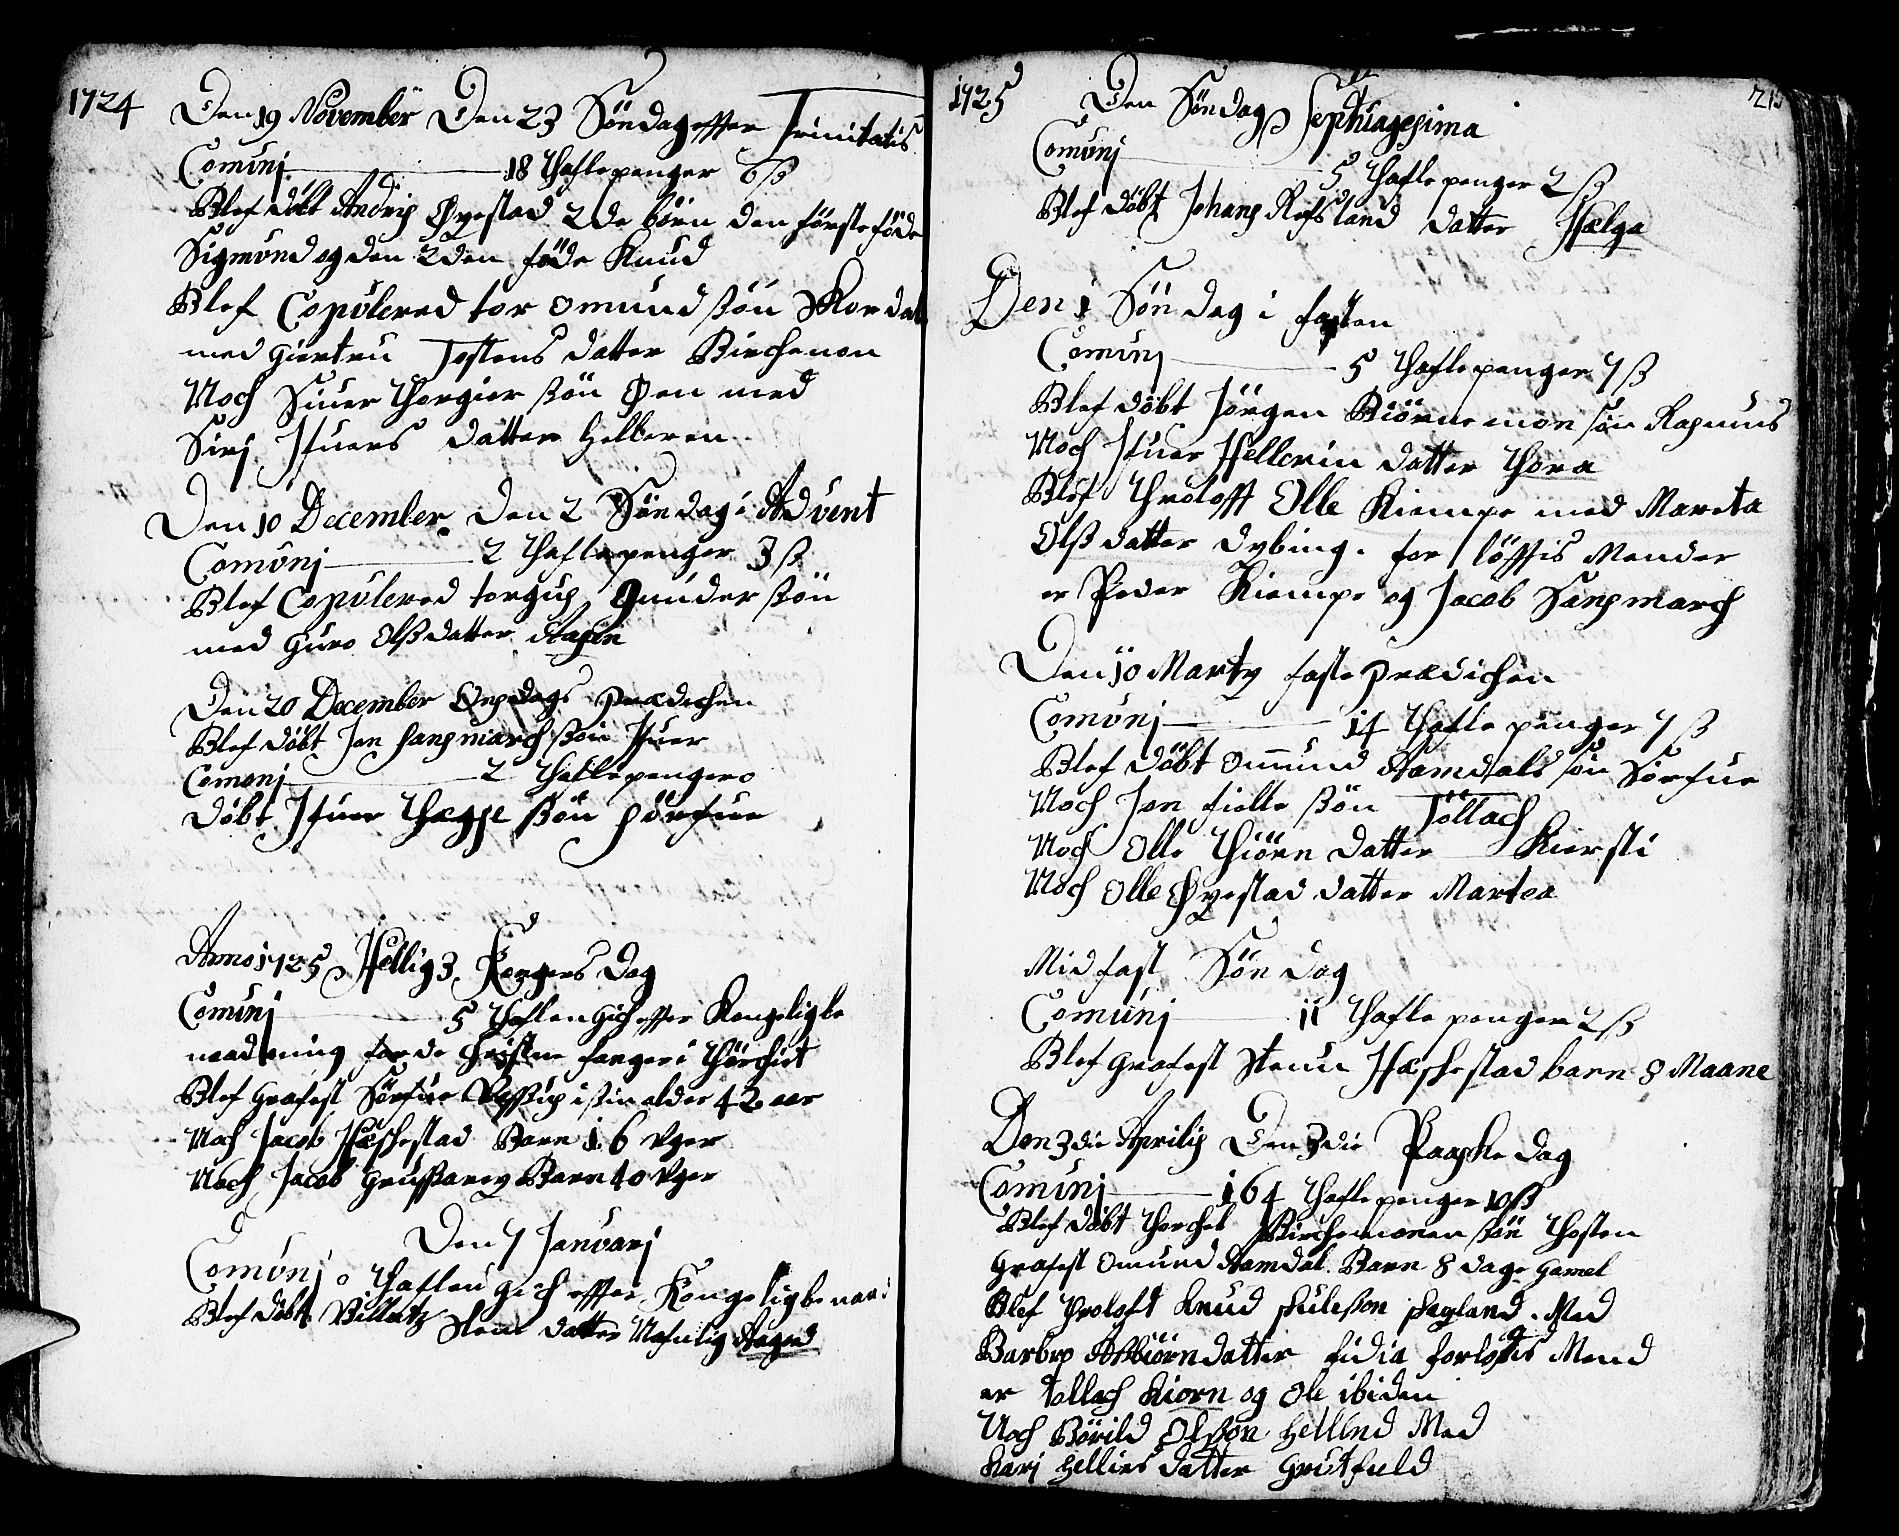 1724
Den 19 November Den 23 Söndag effter Trinitatis
Comunj 18 thaflepenger 6 ß
Blef döbt Andris Øvestad 2de börn den förste föde
Sigmund og den 2den föde Knud
Blef Copulered tor omund ßön Mordal
med giertru Tostens datter Birchenon
Noch Siuer thorgier ßön Øen med
Sirj Ifuers datter helleren
Den 10 December Den 2 Söndag i Advent
Comunj 2 thaflepenger 3 ß
Blef Copulered torgup gunder ßön
med guro Olß datter
Den 20 December Onsdags Prædichen
Blef döbt Jon sanpmarch ßön Ifuer
Comonj 2 thaflepenger 0
döbt Ifuer thægge ßön
Anno 1725 Hellig 3 Kongers Dag
Comunj 5 thaflen gich effter Kongelig be
naadning for de Christne fanger i thörchiet
Blef grafest i ßin alder 42 aar
Noch Jacob Hæschestad Barn 16 Uger
Noch Jacob Barn 40 Uger
Den 7 Januarj
Comunj 0 thaflen gich effter Kongelig benaad
Blef döbt Villatz datter Nafnlig Aagod
1725
Den Söndag Septuagesima
Comunj 5 thafle penger 2 ß
Blef döbt Johans Refsland datter Hælga
Den 1 Söndag i fasten
Comunj 5 thaflepenger 7 ß
Blef döbt Jörgen Biörnemon sön Rasmus
Noch Ifuer Hellerin datter thora
Blef throlofft Olle Kiempe med Mareta
Olß datter dybing. for löfftis Mender
er Peder Kiempe og Jacob Sanpmarch
Den 10 Marty faste Prædichen
Comunj 14 thafle penger 7 ß
Blef döbt omund Aamdals sön Sörfue
Noch Jon fielle ßön Töllach
Noch Olle thiörn datter Kiersti
Noch Olle Øvestad datter Martea
Midfast Söndag
Comunj 11 thafle penger 2 ß
Blef grafest Stenu Hæschestad barn 8 Maane
Den 3die Aprilis Den 3die Paaske dag
Comunj 164 thaflepenger 10 ß
Blef döbt thorchel Birchemonen ßön thosten
grafest omund Aamdal Barn 8 dage gamel
Blef throloft Knud skuleßon Med
Barbro Asbiörn datter fidia forlofftis Mend
er tollach kiorn og Ole ibiden
Noch Börild Olßon hellend Med
Karj Hellies datter grutfield